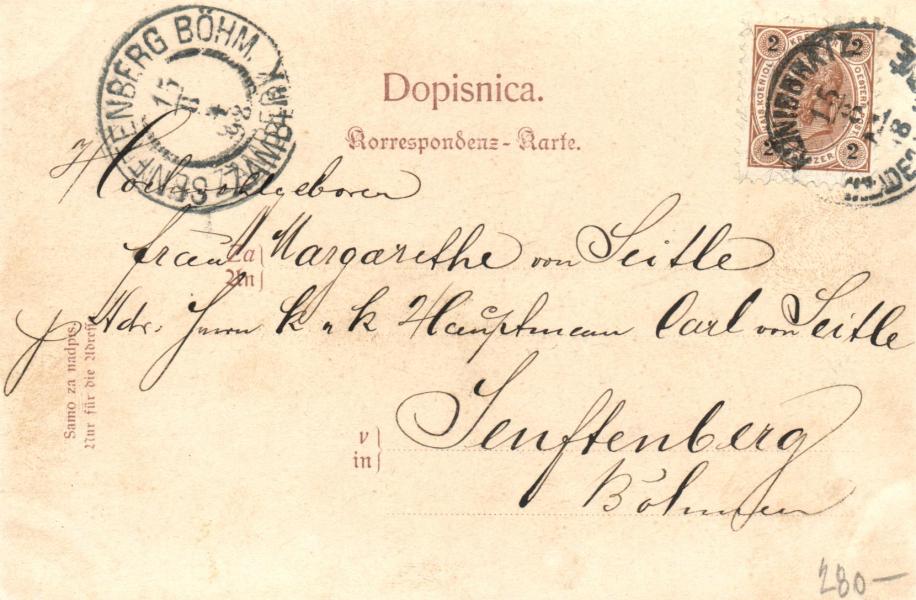 SENFTENBERG BÖHM. ŽAMBERK
15
98
2 2
KAIS. KOENIGL. OESTERR. POST
2 KREUZER 2
15
Dopisnica.
Korrespondenz-Karte.
Hochwohlgeboren
Za
An
Frau Margarethe von Seitle
Adr. Herrn k u k Hauptmann Carl von Seitle
Samo za nadpis.
Nur für die Adresse
v
in
Senftenberg
Böhmen
280—